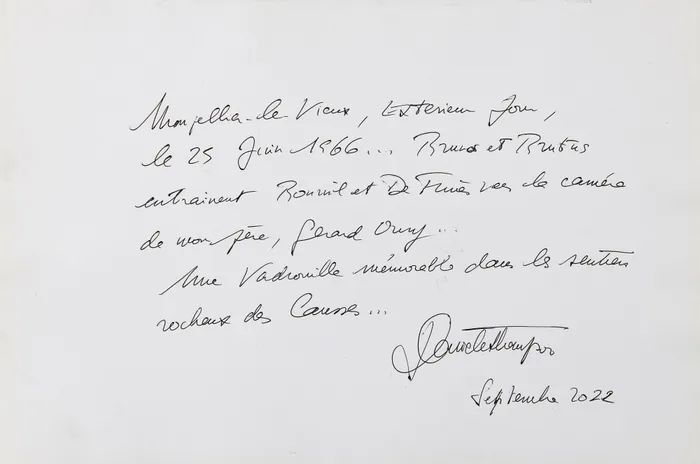 Montpellier-le Vieux, Extérieur Jour,
le 25 Juin 1966... Bruno et Brutus
entrainent Bourvil et De Funès vers la caméra
de mon père, Gérard Oury...
Une Vadrouille mémorable dans les sentiers
rocheux des Causses...
Danièle Thompson
Septembre 2022